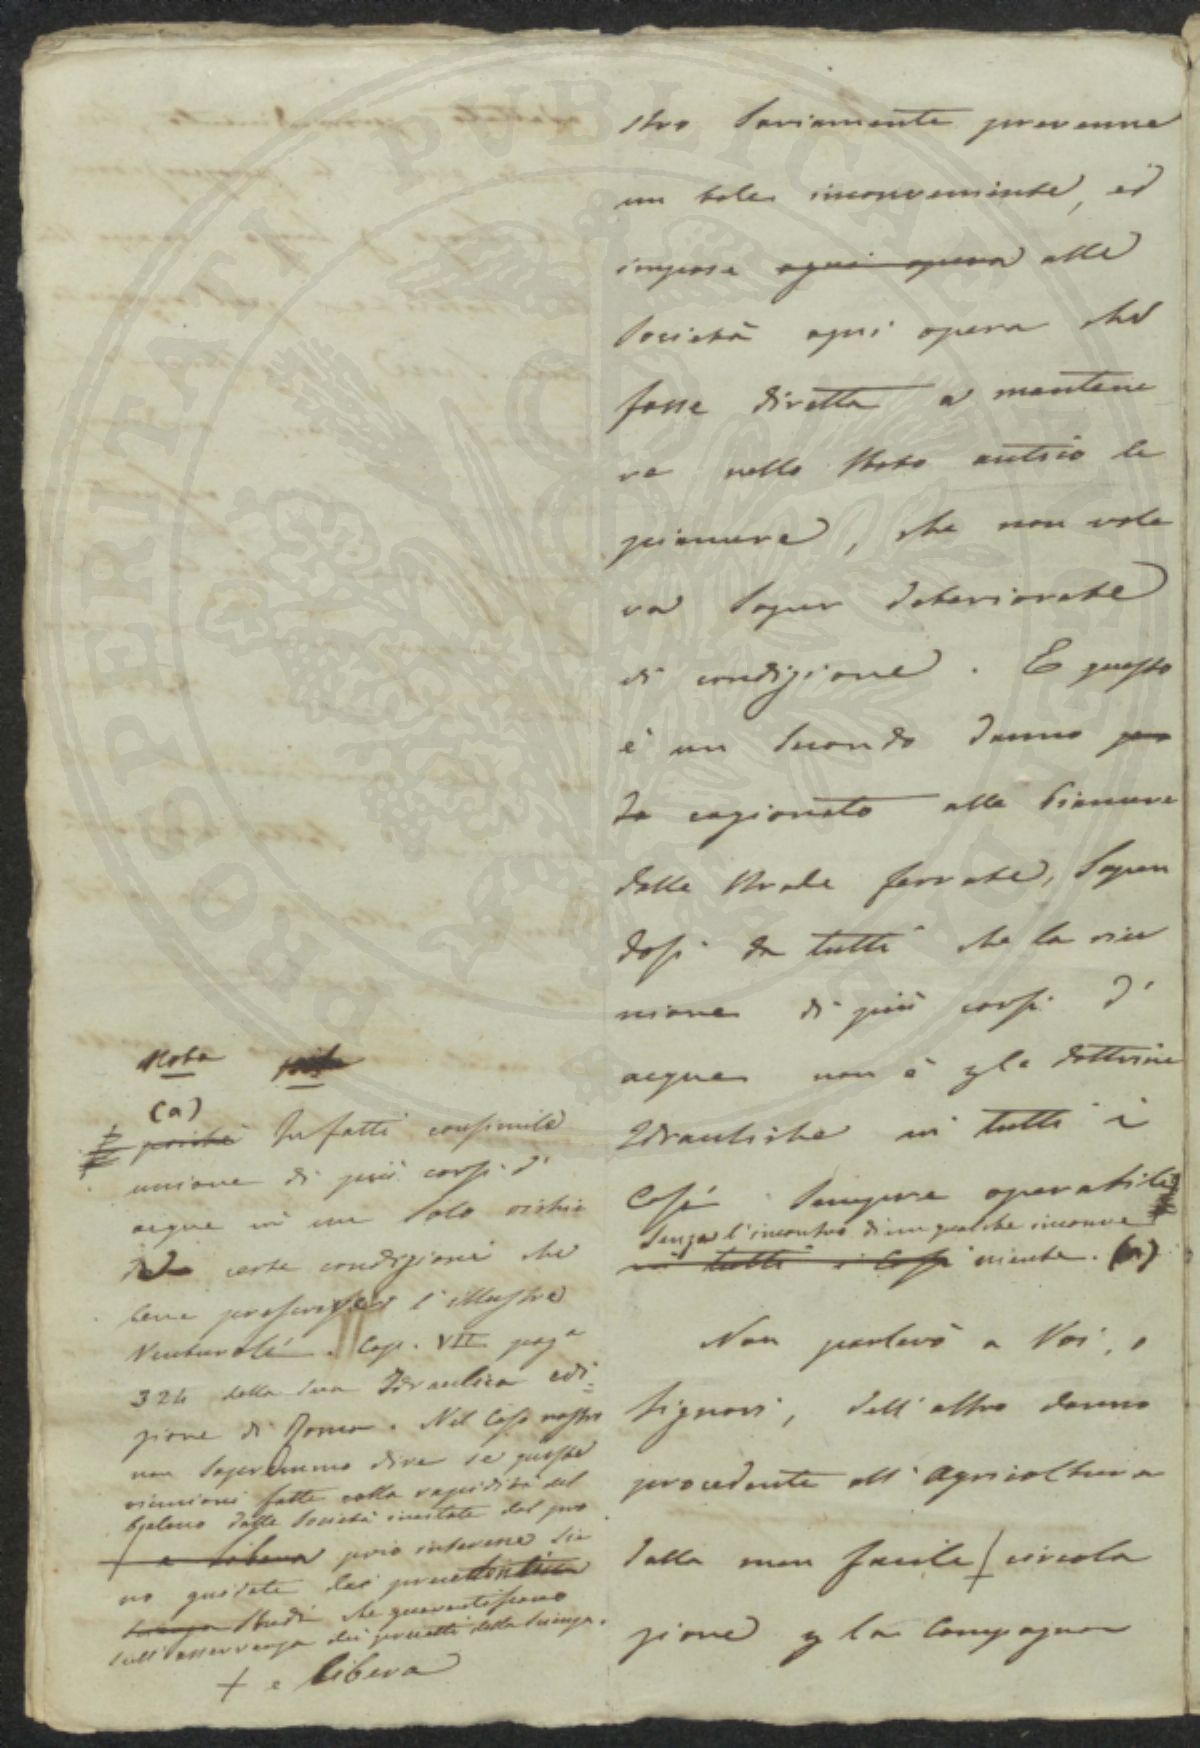 stro saviamente prevenne
un tale inconveniente, ed
impose ogni opera alle
Società ogni opera che
fosse diretta a mantene
re nello stato antico le
pianure, che non vole
va saper deteriorate
di condizione. E questo
è un secondo danno
da cagionato alle Pianure
dalle strade ferrate, sapen
dosi da tutti che la riu
nione di più corsi d'
acque non è p le dottrine
Idrauliche in tutti i
Casi sempre operabile
senza l'incontro di un qualche inconve
in tutti i casi niente. (a)
Non parlerò a Voi, o
Signori, dell'altro danno
procedente all'Agricoltura
dalla men facile + circola
zione p la Campagna
Nota
(a)
poichè Infatti consimile
unione di più corsi d'
acque in un solo richie
de certe condizioni che
bene prescrisse l'illustre
Venturoli. Cap. VII pag.a
324 della sua Idraulica edi=
zione di Roma. Nel Caso nostro
non sapremmo dire se queste
riunioni fatte colla rapidità del
baleno dalle Società incitate dal pro
prio interesse sie
no guidate dai
studi che guarentiscano
sull'osservanza dei precetti della scienza.
+ e libera